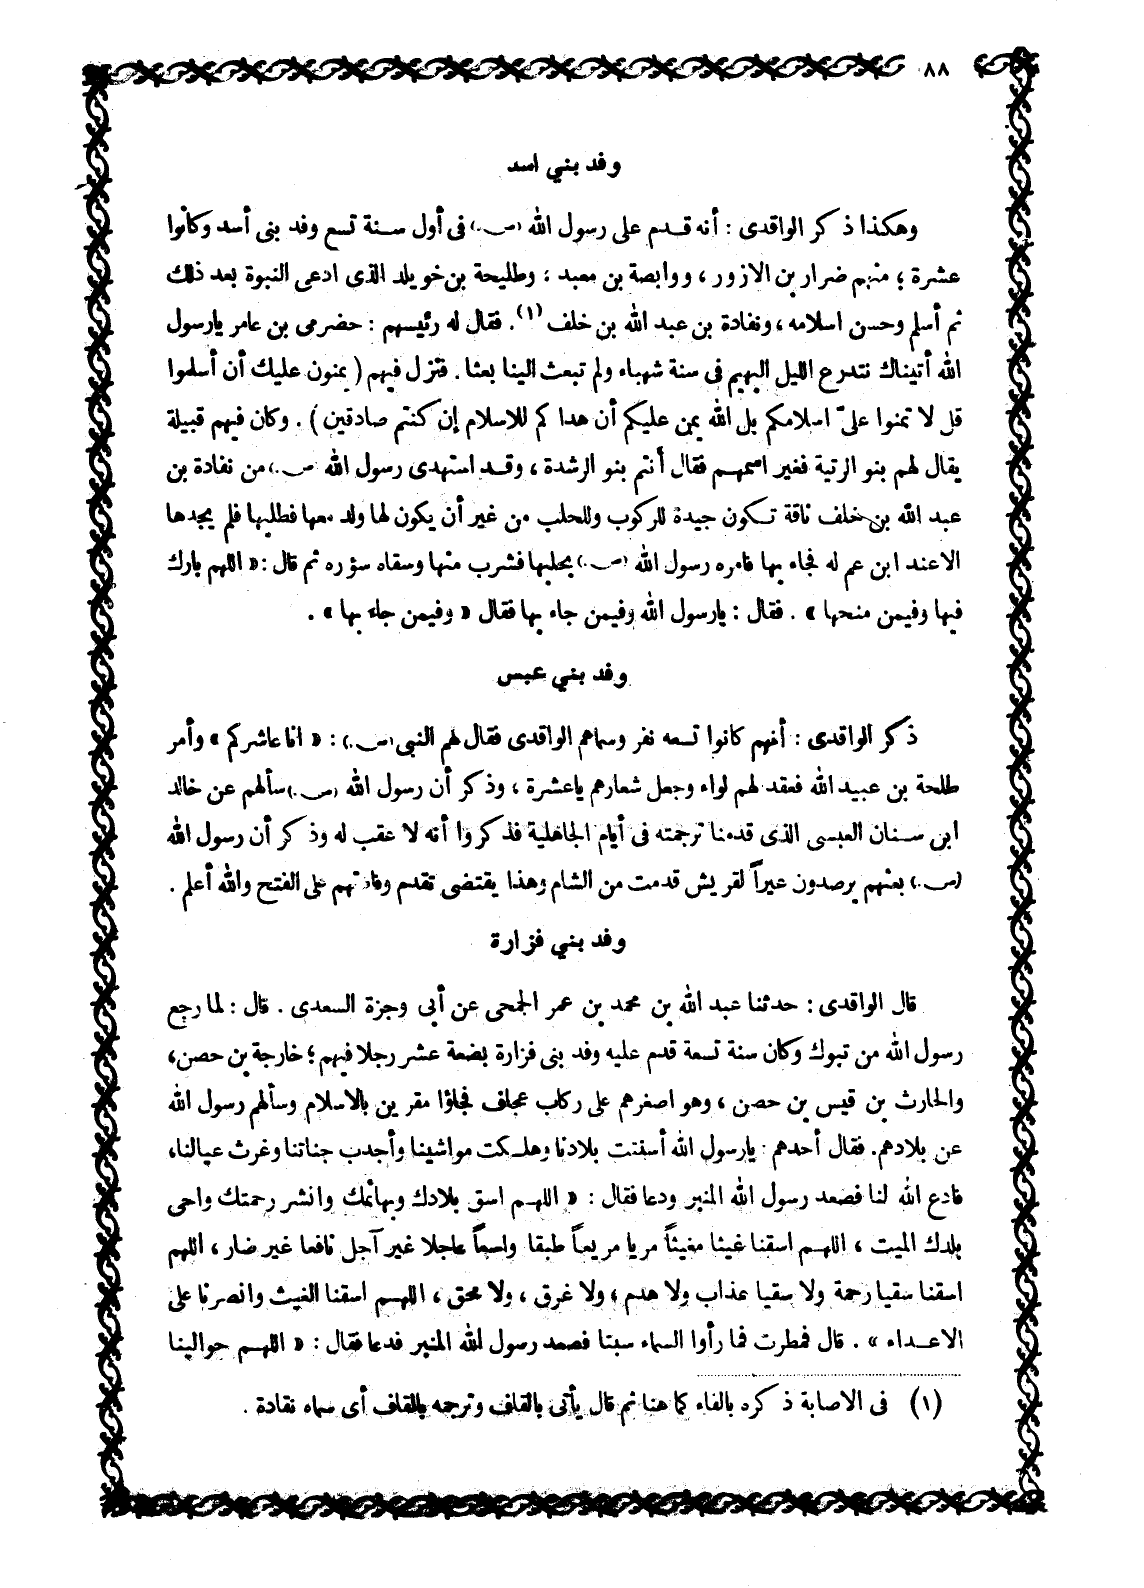 ٨٨
وفد بني اسد
وهكذا ذكر الواقدى : أنه قدم على رسول الله (ص.) فى أول سنة تسع وفد بنى أسد وكانوا
عشرة ؛ منهم ضرار بن الازور ، ووابصة بن معبد ؛ وطليحة بن خويلد الذى ادعى النبوة بعد ذلك
ثم أسلم وحسن اسلامه ، ونفادة بن عبد الله بن خلف (١) . فقال له رئيسهم : حضرمى بن عامر يارسول
الله أتيناك نتدرع الليل البهيم فى سنة شهباء ولم تبعث الينا بعثا . فنزل فيهم ( يمنون عليك أن أسلموا
قل لا تمنوا علىّ اسلامكم بل الله يمن عليكم أن هداكم للاسلام إن كنتم صادقين ) . وكان فيهم قبيلة
يقال لهم بنو الرتية فغير اسمهم فقال أنتم بنو الرشدة ، وقد استهدى رسول الله (ص.) من نفادة بن
عبد الله بن خلف ناقة تكون جيدة للركوب وللحلب من غير أن يكون لها ولد معها فطلبها فلم يجدها
الاعند ابن عم له فجاء بها فامره رسول الله (ص.) بحلبها فشرب منها وسقاه سؤره ثم قال : « اللهم بارك
فيها وفيمن منحها » . فقال : يارسول الله وفيمن جاء بها فقال « وفيمن جاء بها » .
وفد بني عبس
ذكر الواقدى : أنهم كانوا تسعه نفر وسماهم الواقدى فقال لهم النبى (ص.) : « انا عاشركم » وأمر
طلحة بن عبيد الله فعقد لهم لواء وجعل شعارهم ياعشرة ، وذكر أن رسول الله (ص.) سألهم عن خالد
ابن سنان العبسى الذى قدمنا ترجمته فى أيام الجاهلية فذكروا أنه لا عقب له وذكر أن رسول الله
(ص.) بعثهم يرصدون عيراً لقريش قدمت من الشام وهذا يقتضى تقدم وفادتهم على الفتح والله أعلم .
وفد بني فزارة
قال الواقدى : حدثنا عبد الله بن محمد بن عمر الجمحى عن أبى وجزة السعدى . قال : لما رجع
رسول الله من تبوك وكان سنة تسعة قدم عليه وفد بنى فزارة بضعة عشر رجلا فيهم ؛ خارجة بن حصن ،
والحارث بن قيس بن حصن ، وهو اصغرهم على ركاب عجاف فجاؤا مقرين بالاسلام وسألهم رسول الله
عن بلادهم. فقال أحدهم : يارسول الله أسنتت بلادنا وهلكت مواشينا وأجدب جناتنا وغرث عيالنا ،
فادع الله لنا فصعد رسول الله المنبر ودعا فقال : « اللهم اسق بلادك وبهائمك وانشر رحمتك واحى
بلدك الميت ، اللهم اسقنا غيثا مغيثاً مريا مريعاً طبقا واسعاً عاجلا غير آجل نافعا غير ضار ، اللهم
اسقنا سقيا رحمة ولا سقيا عذاب ولا هدم ؛ ولا غرق ، ولا محق ، اللهم اسقنا الغيث وانصرنا على
الاعداء » . قال فمطرت فما رأوا السماء سبتا فصعد رسول الله المنبر فدعا فقال : « اللهم حوالينا
(١) فى الاصابة ذكره بالفاء كما هنا ثم قال يأتى بالقاف وترجمه بالقاف أى سماه نقادة .